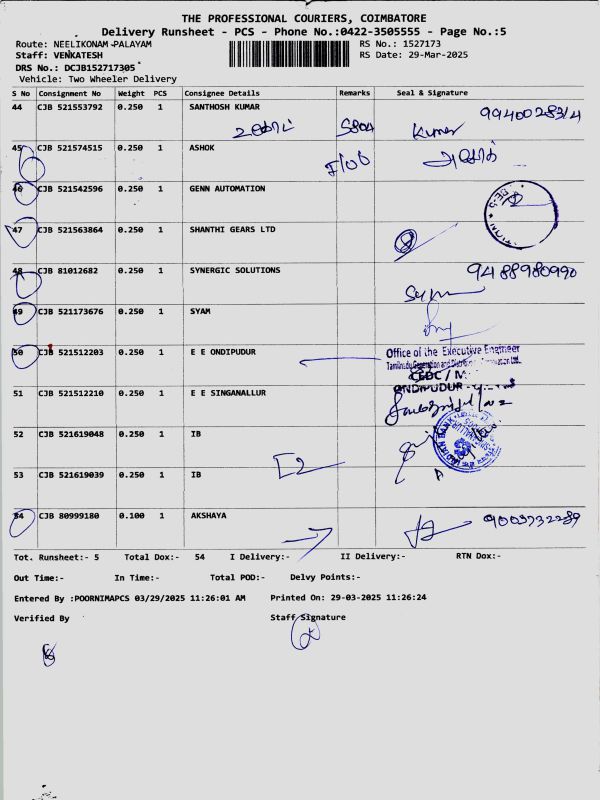 THE PROFESSIONAL COURIERS, COIMBATORE
Delivery Runsheet - PCS - Phone No.:0422-3505555 - Page No.:5
Route: NEELIKONAM-PALAYAM RS No.: 1527173
Staff: VENKATESH RS Date: 29-Mar-2025
DRS No.: DCJB152717305
Vehicle: Two Wheeler Delivery
S No Consignment No Weight PCS Consignee Details Remarks Seal & Signature
44 CJB 521553792 0.250 1 SANTHOSH KUMAR
Kumar
45 CJB 521574515 0.250 1 ASHOK
அசோக்
46 CJB 521542596 0.250 1 GENN AUTOMATION
47 CJB 521563864 0.250 1 SHANTHI GEARS LTD
48 CJB 81012682 0.250 1 SYNERGIC SOLUTIONS 9488980990
49 CJB 521173676 0.250 1 SYAM
50 CJB 521512203 0.250 1 E E ONDIPUDUR Office of the Executive Engineer
ONDIPUDUR
51 CJB 521512210 0.250 1 E E SINGANALLUR
52 CJB 521619048 0.250 1 IB
INDIAN BANK
53 CJB 521619039 0.250 1 IB
54 CJB 80999180 0.100 1 AKSHAYA 9003732289
Tot. Runsheet:- 5 Total Dox:- 54 I Delivery:- II Delivery:- RTN Dox:-
Out Time:- In Time:- Total POD:- Delvy Points:-
Entered By :POORNIMAPCS 03/29/2025 11:26:01 AM Printed On: 29-03-2025 11:26:24
Verified By Staff Signature